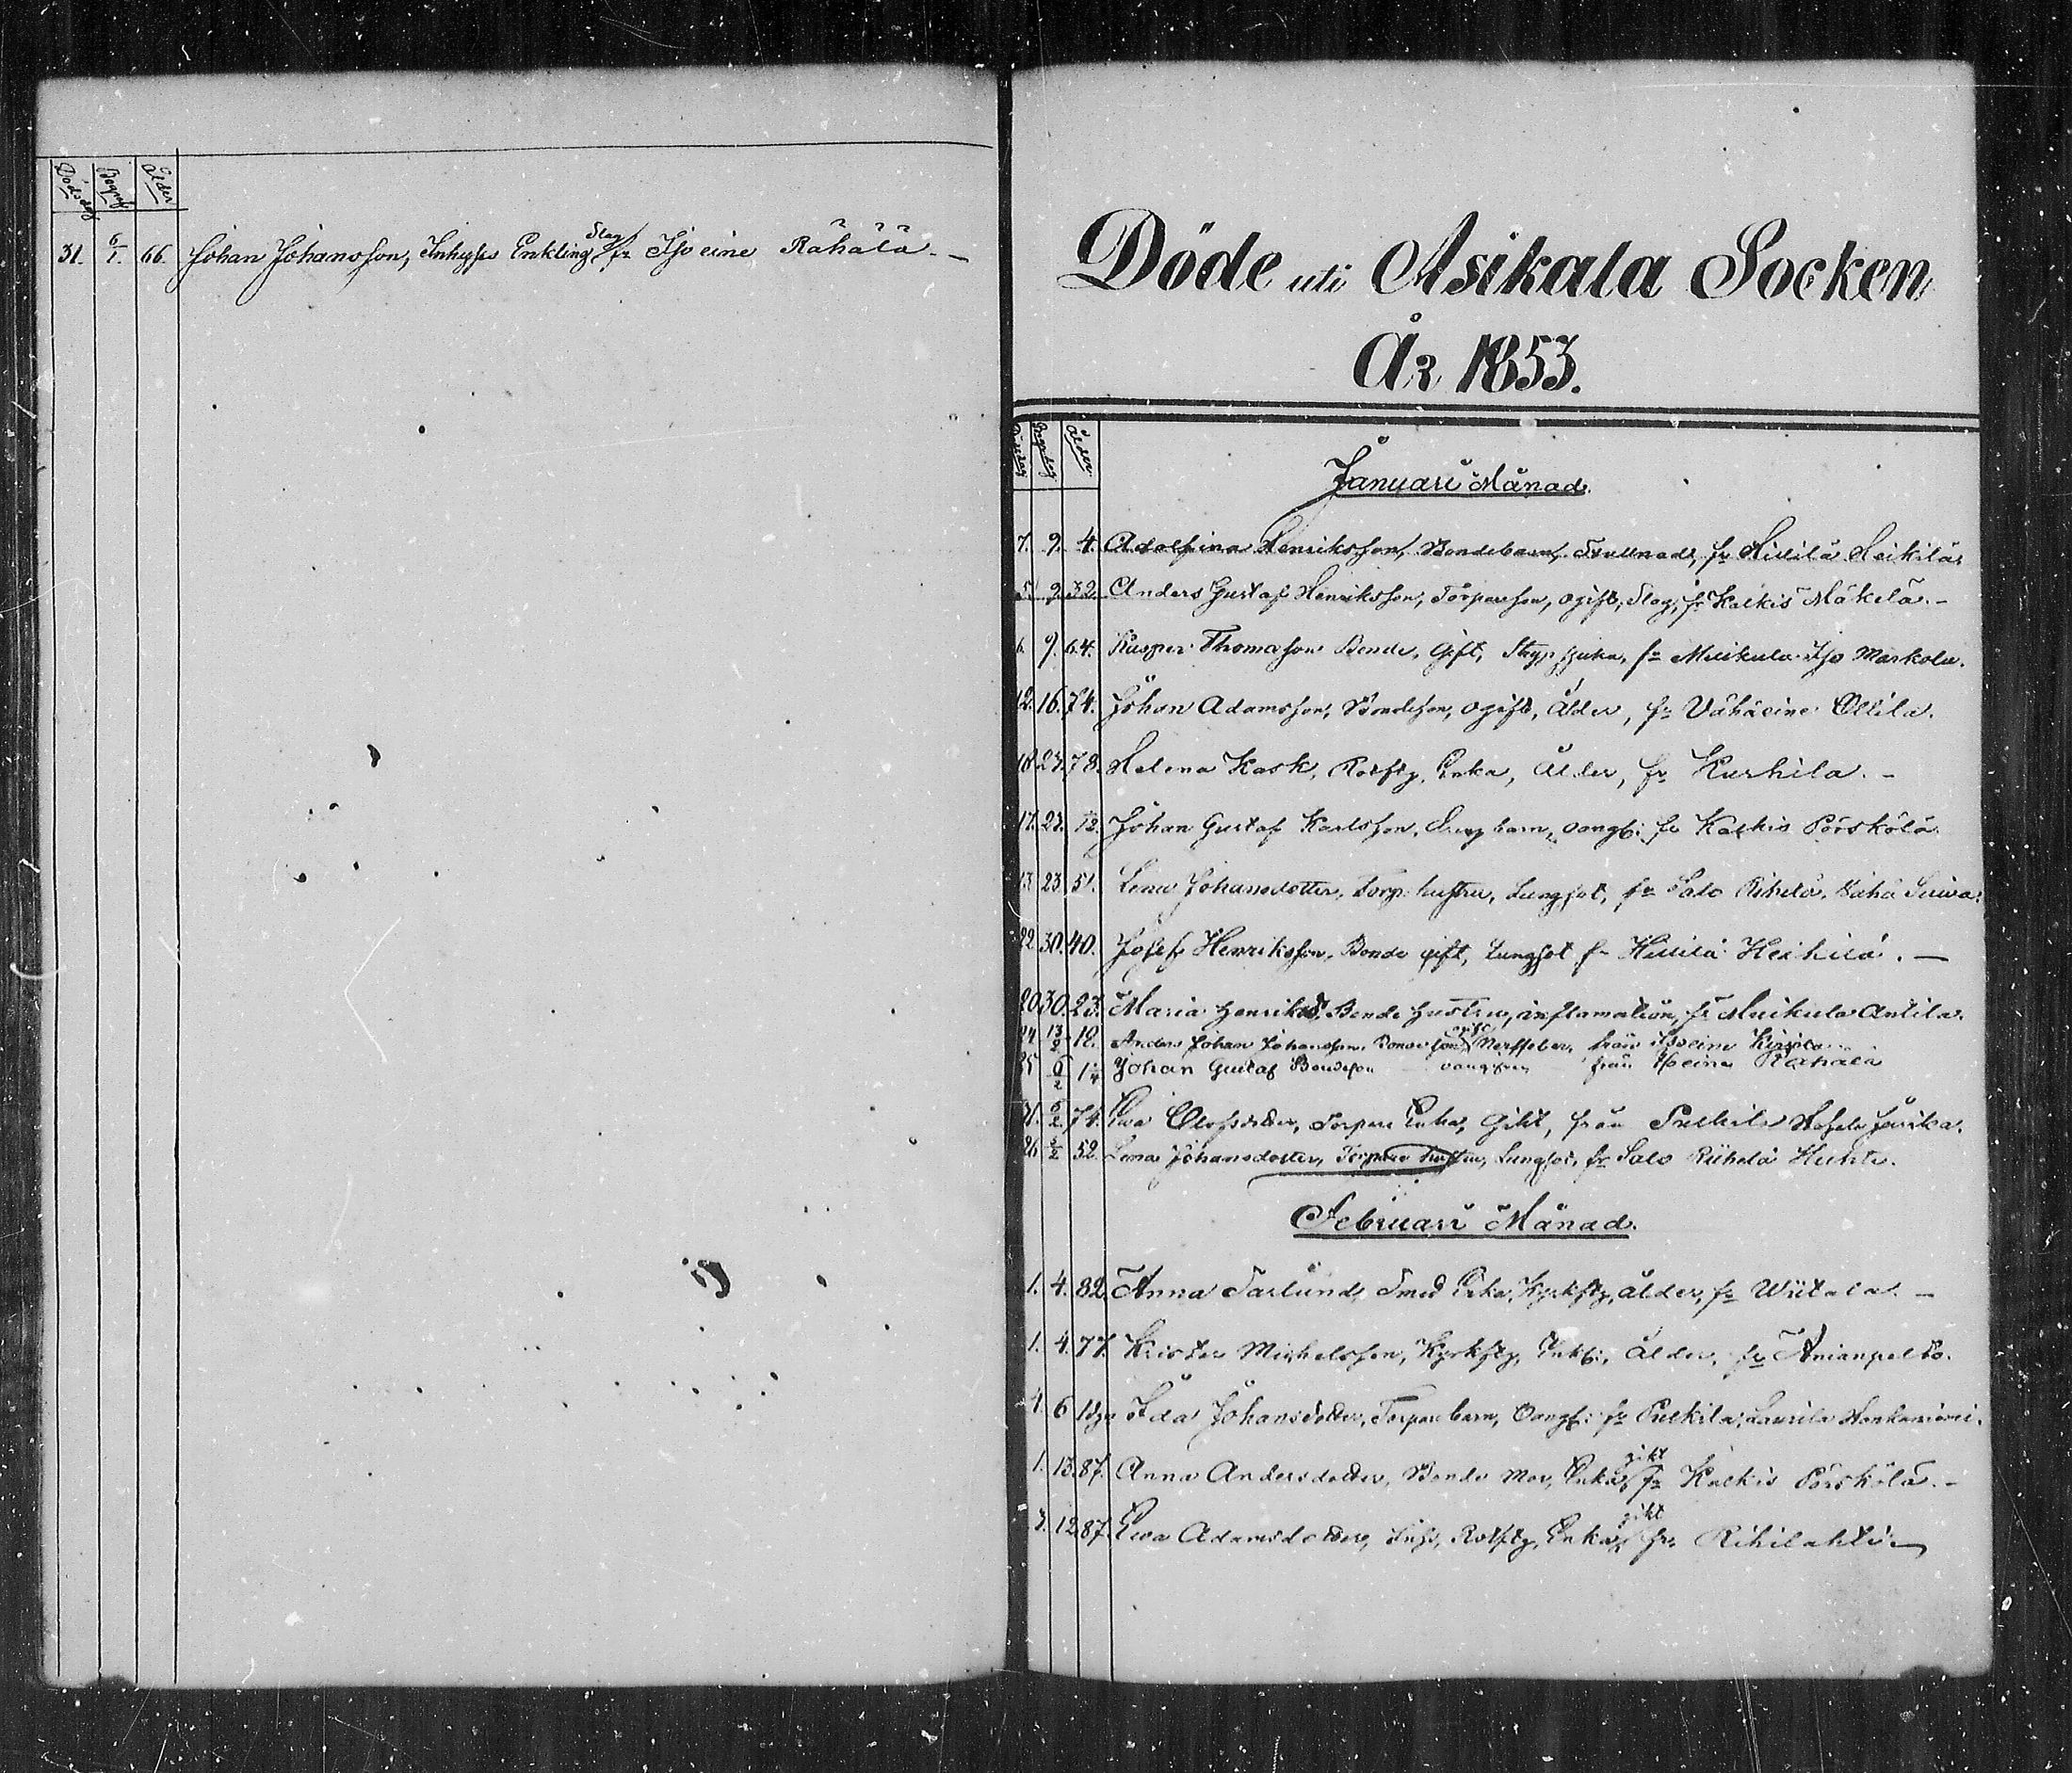 Dödsdag Begraf Ålder
31. 6/1. 66. Johan Johansson, Inhyses Enkling, Slag fr Iso eine Rähälä. –
Döde uti Asikala Socken
År 1853.
Dödsdag Begr.dag Ålder
Januari Månad.
7. 9. 4. Adolfina Henriksson, Bondebarn, fr Hillilä Heikilä.
5. 9. 32. Anders Gustaf Henriksson, Torpareson, ogift, Slag, fr Kalkis Mäkelä. –
6. 9. 64. Kasper Thomasson Bonde, Gift, fr Muikula Iso Markola.
12. 16. 74. Johan Adamsson, Bondeson, ogift, Ålder, fr Vähäeine Ollila.
18. 23. 78. Helena Kask, Rotftg, Enka, Ålder, fr Kurhila. –
17. 23. Johan Gustaf Karlsson, barn, oangf: fr Kalkis Pörskölä.
13. 23. 51. Lena Johansdotter, Torp. hustru, Lungsot, fr Salo Rihelä, Vähä
22. 30. 40. Josef Henriksson, Bonde gift, Lungsot fr Hillilä Heikilä. –
20. 30. 23. Maria Henriksd. Bonde Hustru, inflamation, fr Muikula Antila.
24 13/2 18. Anders Johan Johansson, Bondeson ogift Nerffeber, från Isoeine
25 6/2 1/4 Johan Gustaf Bondeson oangifven från Isoeine Rähälä
31. 6/2 74. Ewa Olofsdotter, Torpare Enka, Gikt, från Pulkila
26 6/2 52. Lena Johansdotter, Torpare hustru, Lungsot, fr Salo Riihelä
Februari Månad.
1. 4. 82. Anna Sarlund, Smed Enka, Kyrkftg, ålder, fr Wiitala. –
1. 4. 77. Krister Michelsson, Kyrkftg, Enkl:, Ålder, fr Anianpelto.
4. 6 Ida Johansdotter, Torpare barn, Oangf: fr Pulkila, Laurila
1. 13. 87. Anna Andersdotter, Bonde Mor, Enka, gikt fr Kalkis Pörskölä. –
3. 12 87. Ewa Adamsdotter, Inhs, Rotftg, Enka, gikt fr. Rihilahti. –